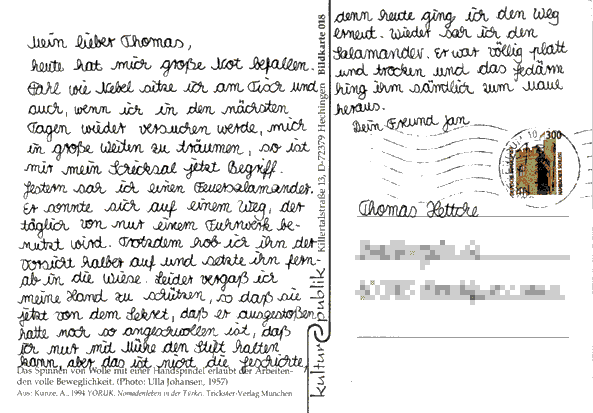 Mein lieber Thomas,
heute hat mich große Not befallen.
Fahl wie Nebel sitze ich am Tisch und
auch, wenn ich in den nächsten
Tagen wieder versuchen werde, mich
in große Weiten zu träumen, so ist
mir mein Schicksal jetzt Begriff.
Gestern sah ich einen Feuersalamander.
Er sonnte sich auf einem Weg, der
täglich von nur einem Fuhrwerk be-
nutzt wird. Trotzdem hob ich ihn der
Vorsicht halber auf und setzte ihn fern-
ab in die Wiese. Leider vergaß ich
meine Hand zu schützen, so daß sie
jetzt von dem Sekret, daß er ausgestoßen
hatte noch so angeschwollen ist, daß
ich nur mit Mühe den Stift halten
kann, aber das ist nicht die Geschichte,
Das Spinnen von Wolle mit einer Handspindel erlaubt der Arbeiten-
den volle Beweglichkeit. (Photo: Ulla Johansen, 1957)
Aus: Kunze, A., 1994 YÖRÜK. Nomadenleben in der Türkei. Trickster-Verlag München
kultur publik Killertalstraße 13, D-72379 Hechingen Bildkarte 018
denn heute ging ich den Weg
erneut. Wieder sah ich den
Salamander. Er war völlig platt
und trocken und das Gedärm
hing ihm sämtlich zum Maule
heraus.
Dein Freund Jan
300
Thomas Hettche